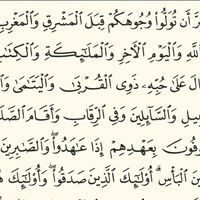 رَّ أَن تُوَلُّوا۟ وُجُوهَكُمْ قِبَلَ ٱلْمَشْرِقِ وَٱلْمَغْرِبِ
ٱللَّهِ وَٱلْيَوْمِ ٱلْءَاخِرِ وَٱلْمَلَٰٓئِكَةِ وَٱلْكِتَٰبِ
الَ عَلَىٰ حُبِّهِۦ ذَوِى ٱلْقُرْبَىٰ وَٱلْيَتَٰمَىٰ وَٱلْ
بِيلِ وَٱلسَّآئِلِينَ وَفِى ٱلرِّقَابِ وَأَقَامَ ٱلصَّلَ
وفُونَ بِعَهْدِهِمْ إِذَا عَٰهَدُوا۟ ۖ وَٱلصَّٰبِرِينَ
ينَ ٱلْبَأْسِ ۗ أُو۟لَٰٓئِكَ ٱلَّذِينَ صَدَقُوا۟ ۖ وَأُو۟لَٰٓئِكَ هُ